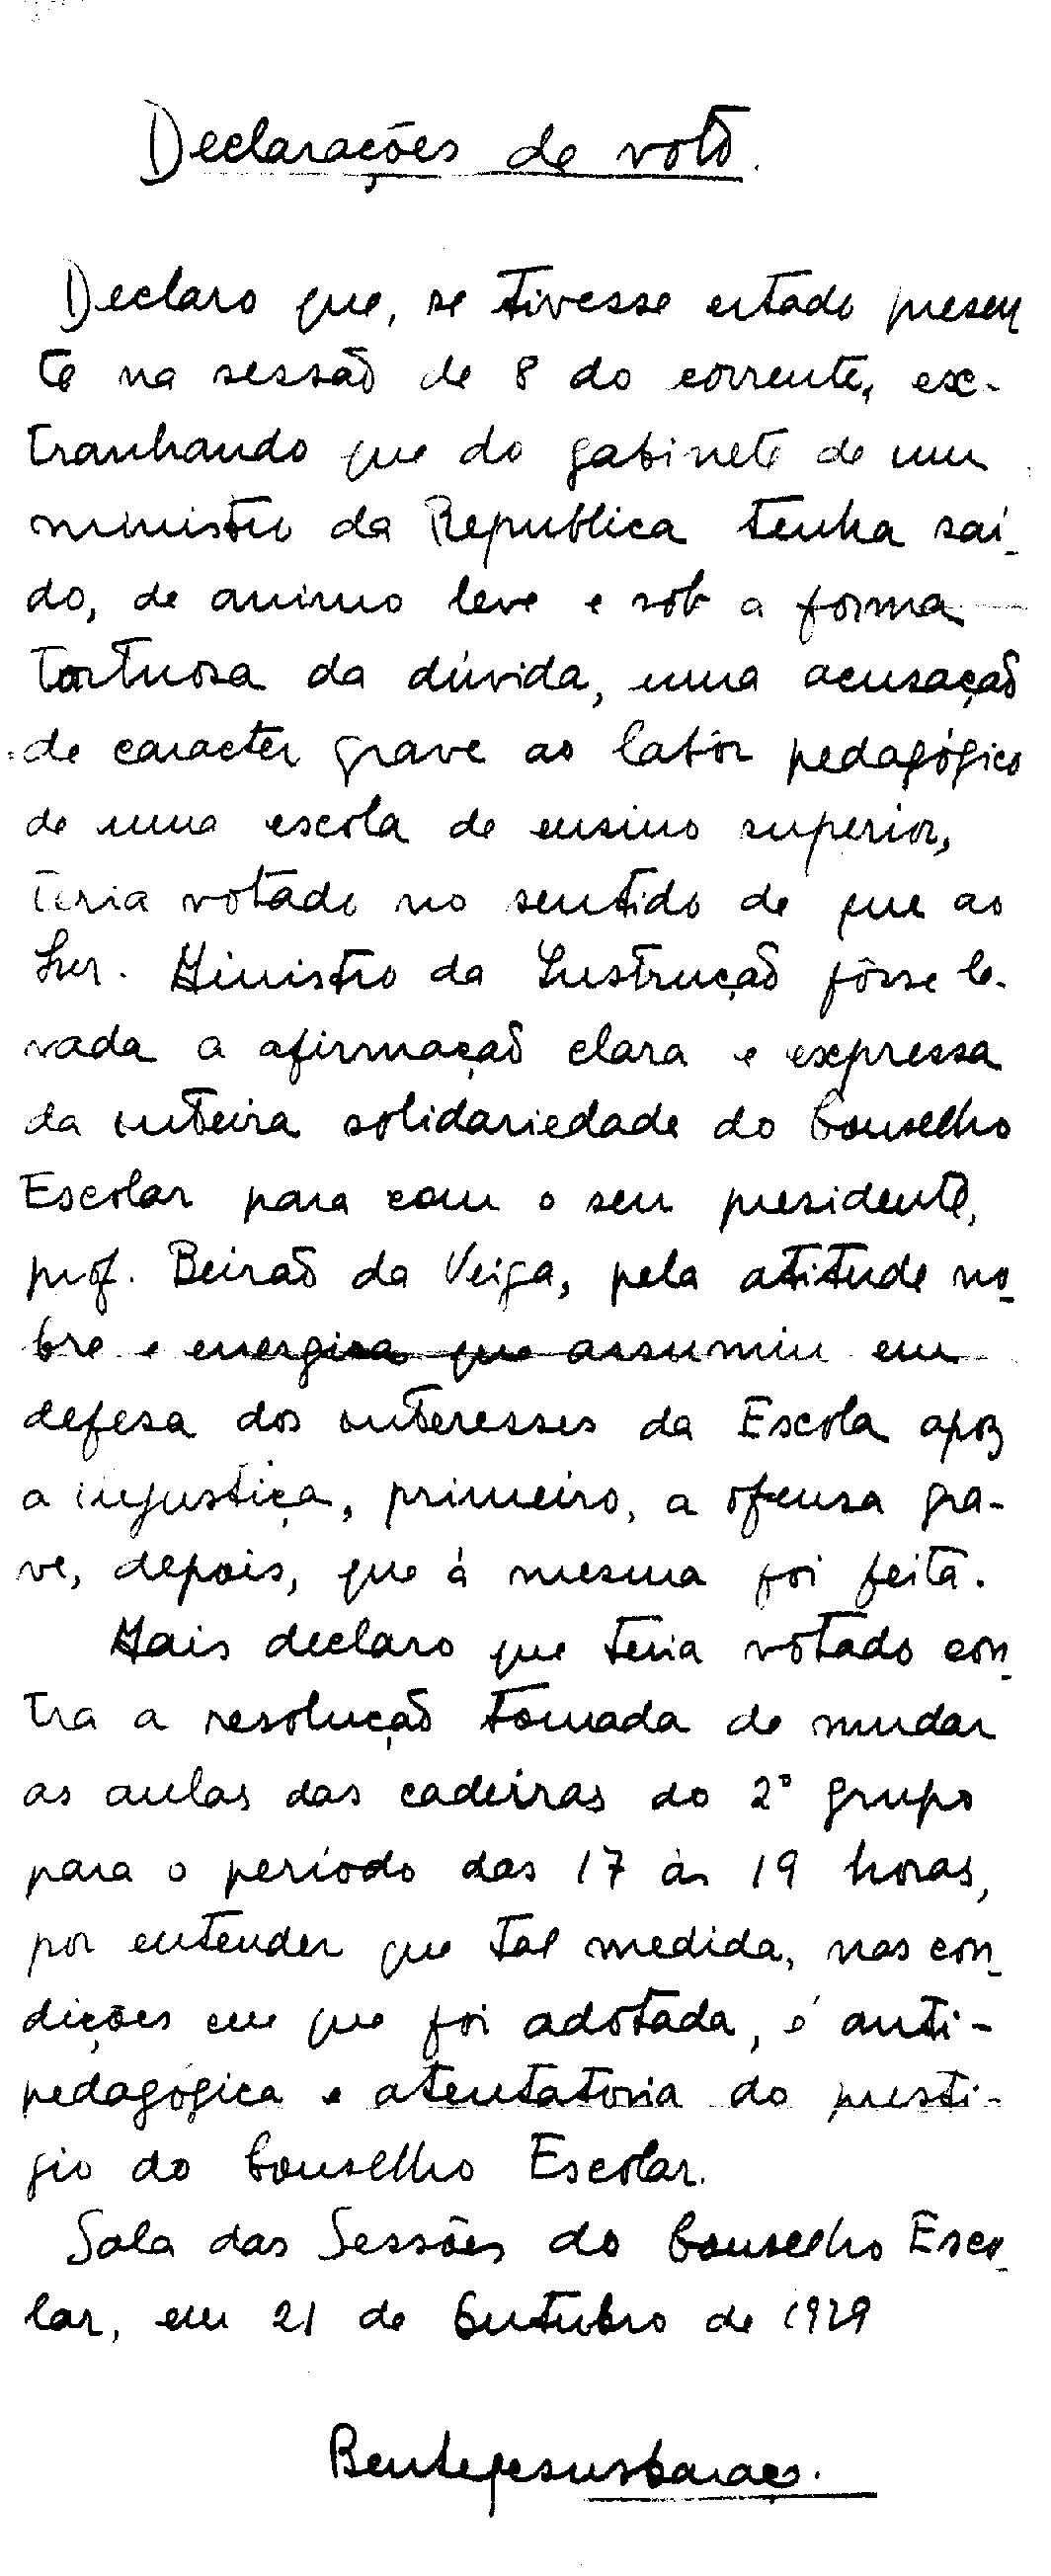 Declarações de voto.
Declaro que, se tivesse estado presen
te na sessão de 8 do corrente, ex-
tranhando que do gabinete de um
ministro da Republica tenha saí-
do, de animo leve e sob a forma
tortuosa da dúvida, uma acusação
de caracter grave ao labôr pedagógico
de uma escola de ensino superior,
teria votado no sentido de que ao
Snr. Ministro da Instrução fôsse le-
vada a afirmação clara e expressa
da inteira solidariedade do Conselho
Escolar para com o seu presidente,
prof. Beirão da Veiga, pela atitude no-
bre e energica que assumiu em
defesa dos interesses da Escola apoz
a injustiça, primeiro, a ofensa gra-
ve, depois, que á mesma foi feita.
Mais declaro que teria votado con-
tra a resolução tomada de mudar
as aulas das cadeiras do 2º grupo
para o período das 17 ás 19 horas,
por entender que tal medida, nas con-
dições em que foi adotada, é anti-
pedagógica e atentatoria do presti-
gio do Conselho Escolar.
Sala das Sessões do Conselho Esco-
lar, em 21 de Outubro de 1929
Bentojesuscaraça.